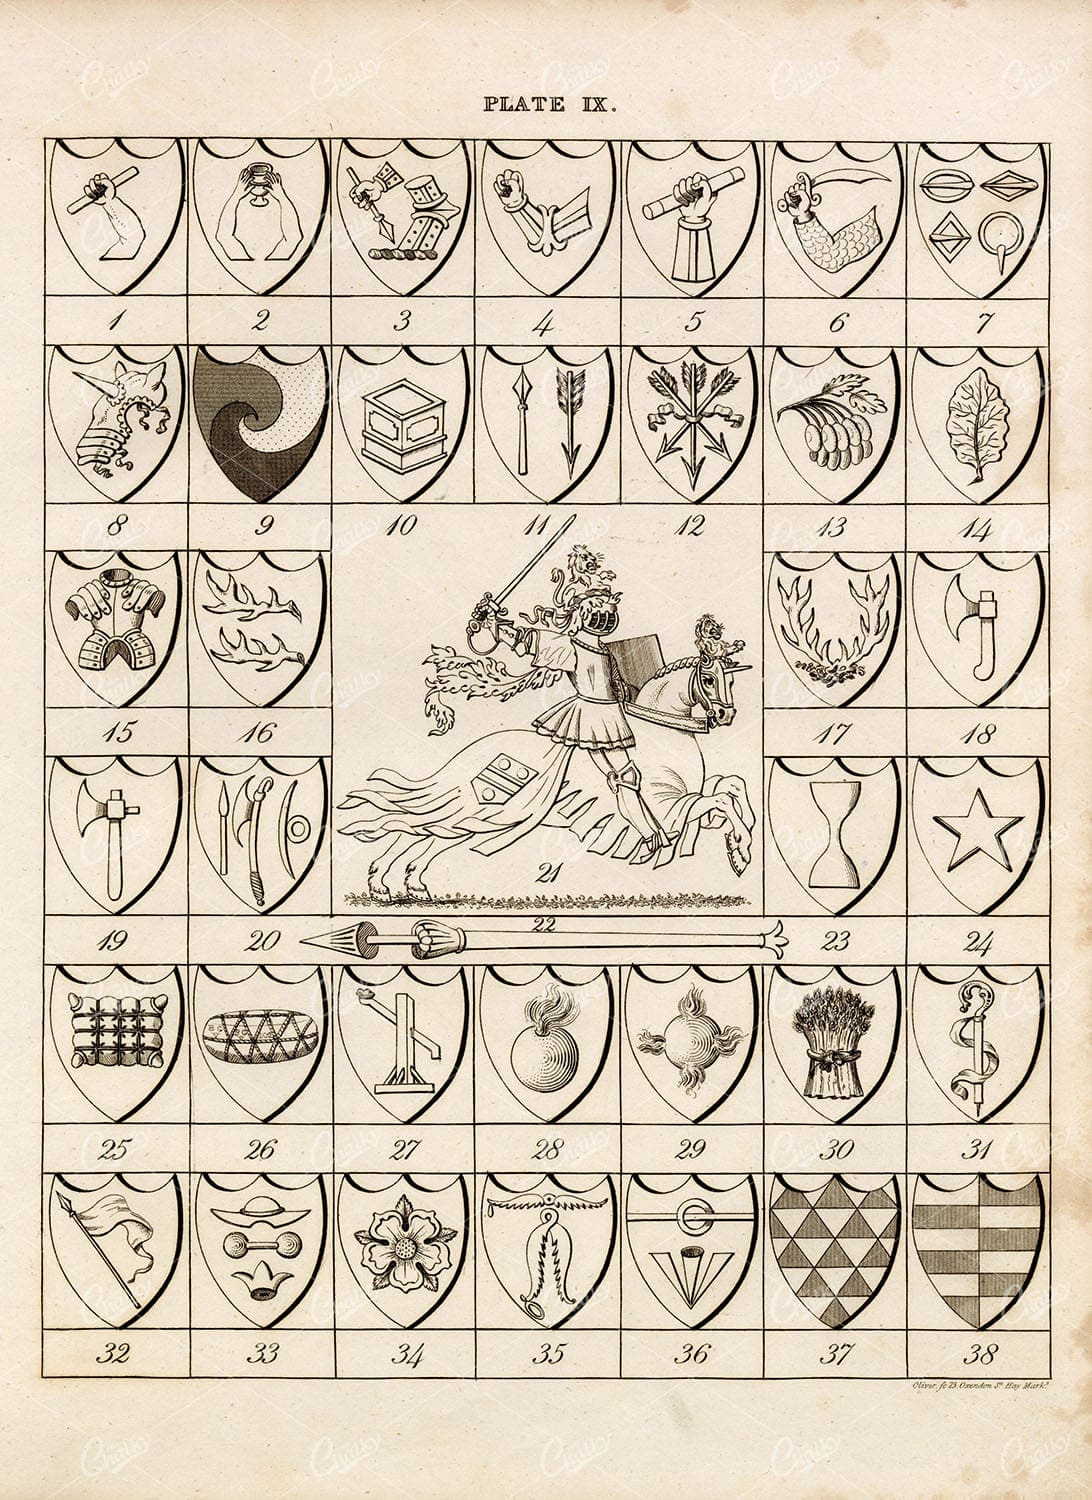 PLATE IX.
1 2 3 4 5 6 7
8 9 10 11 12 13 14
15 16 17 18
19 20 21 22 23 24
25 26 27 28 29 30 31
32 33 34 35 36 37 38
Oliver, fc 23. Oxendon St. Hay Markt.
Chalky